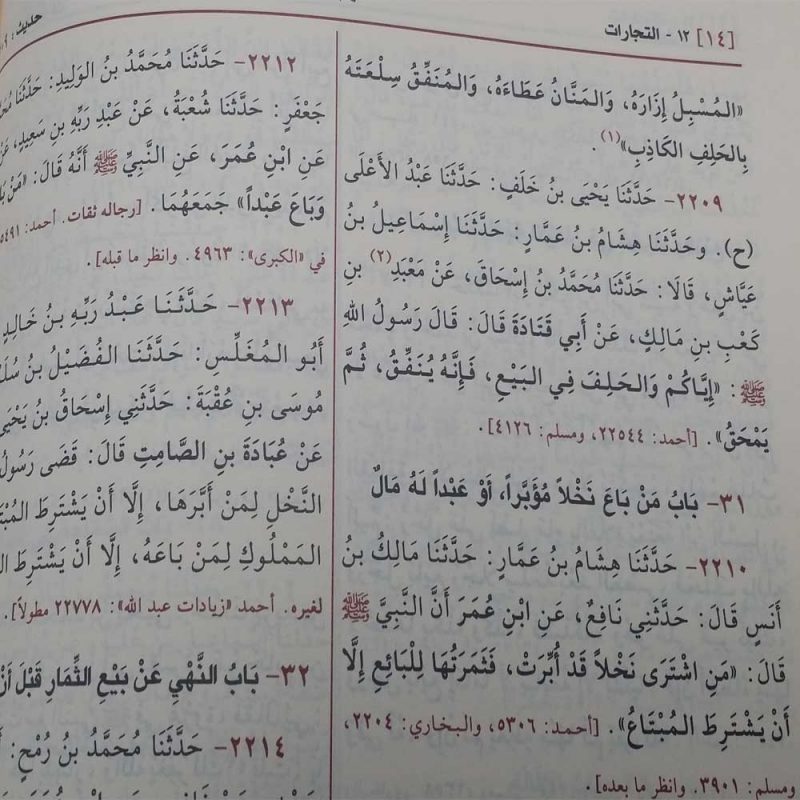 [١٤] ١٢ - التجارات
«المُسْبِلُ إِزَارَهُ، وَالمَنَّانُ عَطَاءَهُ، وَالمُنَفِّقُ سِلْعَتَهُ
بِالحَلِفِ الكَاذِبِ»(١).
٢٢٠٩- حَدَّثَنَا يَحْيَى بنُ خَلَفٍ: حَدَّثَنَا عَبْدُ الأَعْلَى
(ح). وحَدَّثَنَا هِشَامُ بنُ عَمَّارٍ: حَدَّثَنَا إِسْمَاعِيلُ بنُ
عَيَّاشٍ، قَالَا: حَدَّثَنَا مُحَمَّدُ بنُ إِسْحَاقَ، عَنْ مَعْبَدِ(٢) بنِ
كَعْبِ بنِ مَالِكٍ، عَنْ أَبِي قَتَادَةَ قَالَ: قَالَ رَسُولُ اللهِ
ﷺ: «إِيَّاكُمْ وَالحَلِفَ فِي البَيْعِ، فَإِنَّهُ يُنَفِّقُ، ثُمَّ
يَمْحَقُ». [أحمد: ٢٢٥٤٤، ومسلم: ٤١٢٦].
٣١- بَابُ مَنْ بَاعَ نَخْلاً مُؤَبَّراً، أَوْ عَبْداً لَهُ مَالٌ
٢٢١٠- حَدَّثَنَا هِشَامُ بنُ عَمَّارٍ: حَدَّثَنَا مَالِكُ بنُ
أَنَسٍ قَالَ: حَدَّثَنِي نَافِعٌ، عَنِ ابْنِ عُمَرَ أَنَّ النَّبِيَّ ﷺ
قَالَ: «مَنِ اشْتَرَى نَخْلاً قَدْ أُبِّرَتْ، فَثَمَرَتُهَا لِلْبَائِعِ إِلَّا
أَنْ يَشْتَرِطَ المُبْتَاعُ». [أحمد: ٥٣٠٦، والبخاري: ٢٢٠٤،
ومسلم: ٣٩٠١. وانظر ما بعده].
حديث:
٢٢١٢- حَدَّثَنَا مُحَمَّدُ بنُ الوَلِيدِ: حَدَّثَنَا
جَعْفَرٍ: حَدَّثَنَا شُعْبَةُ، عَنْ عَبْدِ رَبِّهِ بنِ سَعِيدٍ، عَنْ
عَنِ ابْنِ عُمَرَ، عَنِ النَّبِيِّ ﷺ أَنَّهُ قَالَ: «مَنْ
وَبَاعَ عَبْداً» جَمَعَهُمَا. [رجاله ثقات. أحمد: ٥٤٩١
في «الكبرى»: ٤٩٦٣. وانظر ما قبله].
٢٢١٣- حَدَّثَنَا عَبْدُ رَبِّهِ بنُ خَالِدٍ
أَبُو المُغَلِّسِ: حَدَّثَنَا الفُضَيْلُ بنُ
مُوسَى بنِ عُقْبَةَ: حَدَّثَنِي إِسْحَاقُ بنُ يَحْيَى
عَنْ عُبَادَةَ بنِ الصَّامِتِ قَالَ: قَضَى رَسُولُ
النَّخْلِ لِمَنْ أَبَّرَهَا، إِلَّا أَنْ يَشْتَرِطَ
المَمْلُوكِ لِمَنْ بَاعَهُ، إِلَّا أَنْ يَشْتَرِطَ
لغيره. أحمد «زيادات عبد الله»: ٢٢٧٧٨ مطولاً].
٣٢- بَابُ النَّهْيِ عَنْ بَيْعِ الثِّمَارِ قَبْلَ أَنْ
٢٢١٤- حَدَّثَنَا مُحَمَّدُ بنُ رُمْحٍ: